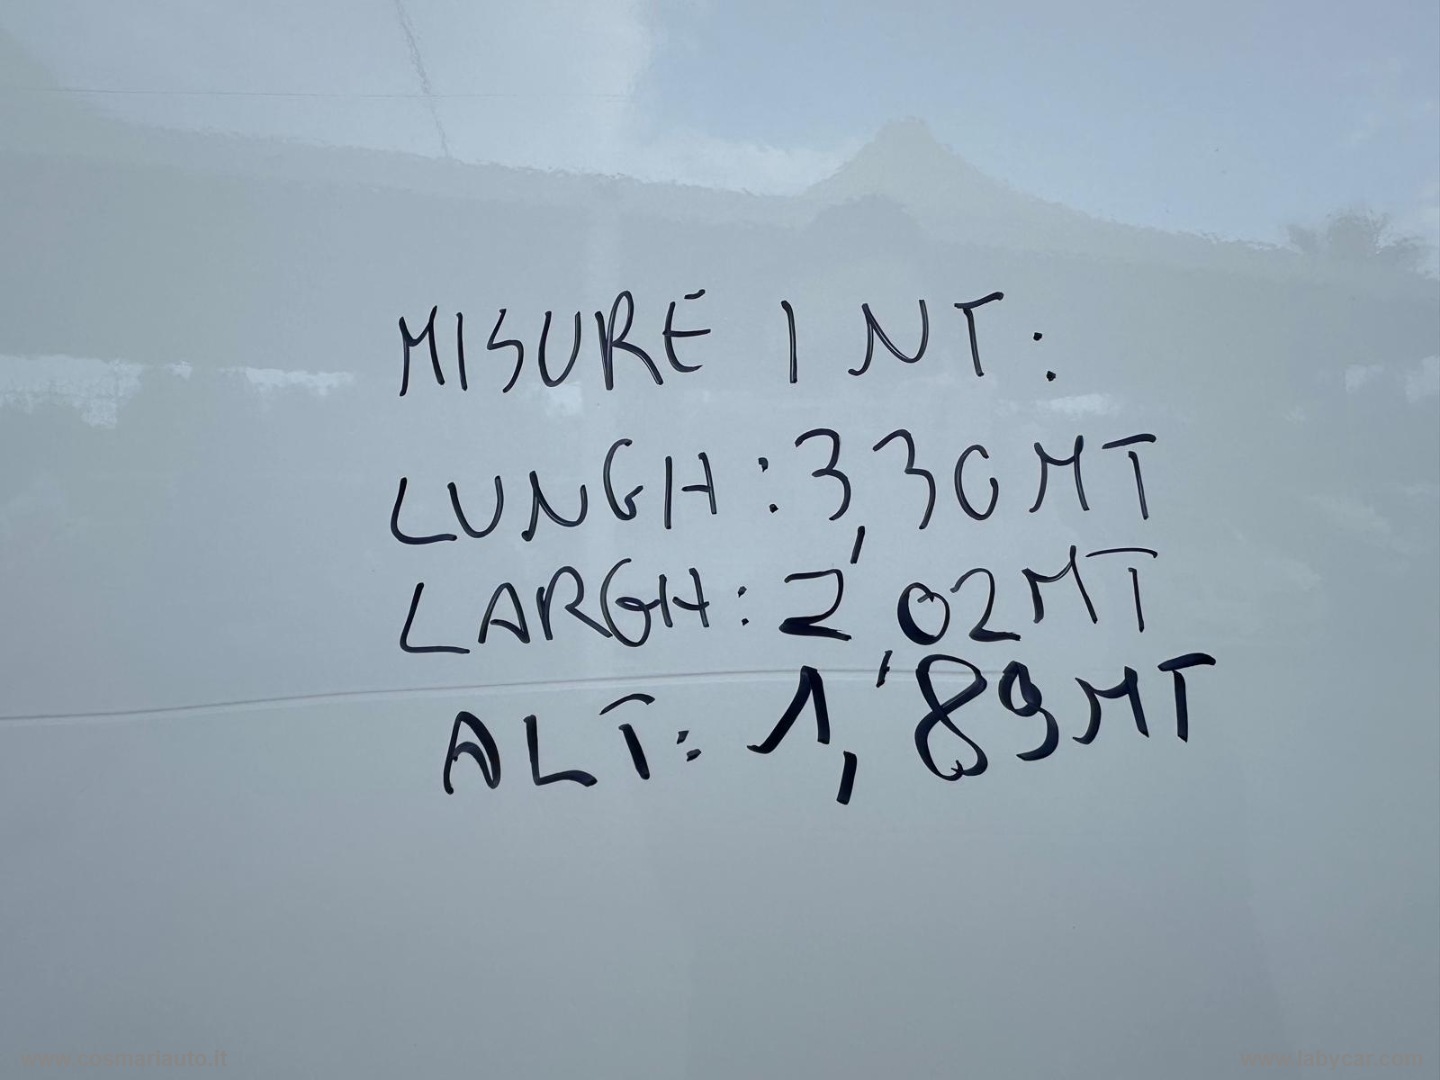 MISURE INT:
LUNGH: 3,30MT
LARGH: 2,02MT
ALT: 1,89MT
www.cosmariauto.it
www.labycar.com